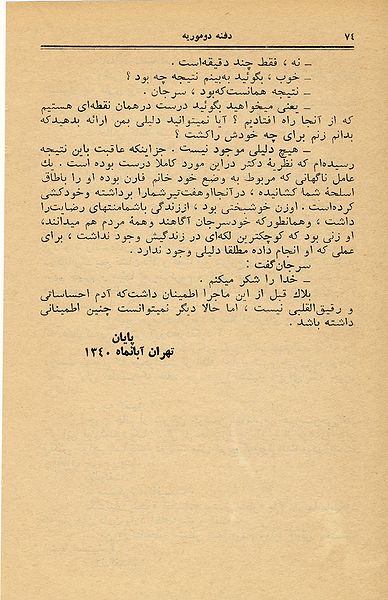 ۷۴
دفنه دوموریه
ـ نه ، فقط چند دقیقه‌است .
ـ خوب ، بگوئید به‌بینم نتیجه چه بود ؟
ـ نتیجه همانست‌که‌بود ، سرجان .
ـ یعنی میخواهید بگوئید درست درهمان نقطه‌ای هستیم
که از آنجا راه افتادیم ؟ آیا نمیتوانید دلیلی بمن ارائه بدهیدکه
بدانم زنم برای چه خودش راکشت ؟
ـ هیچ دلیلی موجود نیست . جزاینکه عاقبت باین نتیجه
رسیده‌ام که نظریهٔ دکتر دراین مورد کاملا درست بوده است . یك
عامل ناگهانی که مربوط به وضع خود خانم فارن بوده او را باطاق
اسلحهٔ شما کشانیده ، درآنجااوهفت‌تیرشمارا برداشته وخودکشی
کرده‌است . اوزن خوشبختی بود ، اززندگی باشمامنتهای رضایت‌را
داشت ، وهمانطورکه خودسرجان آگاهند وهمهٔ مردم هم میدانند،
او زنی بود که کوچکترین لکه‌ای در زندگیش وجود نداشت ، برای
عملی که او انجام داده مطلقا دلیلی وجود ندارد .
سرجان‌گفت :
ـ خدا را شکر میکنم .
بلاك قبل از این ماجرا اطمینان داشت‌که آدم احساساتی
و رقیق‌القلبی نیست ، اما حالا دیگر نمیتوانست چنین اطمینانی
داشته باشد .
پایان
تهران آبانماه ۱۳۴۰